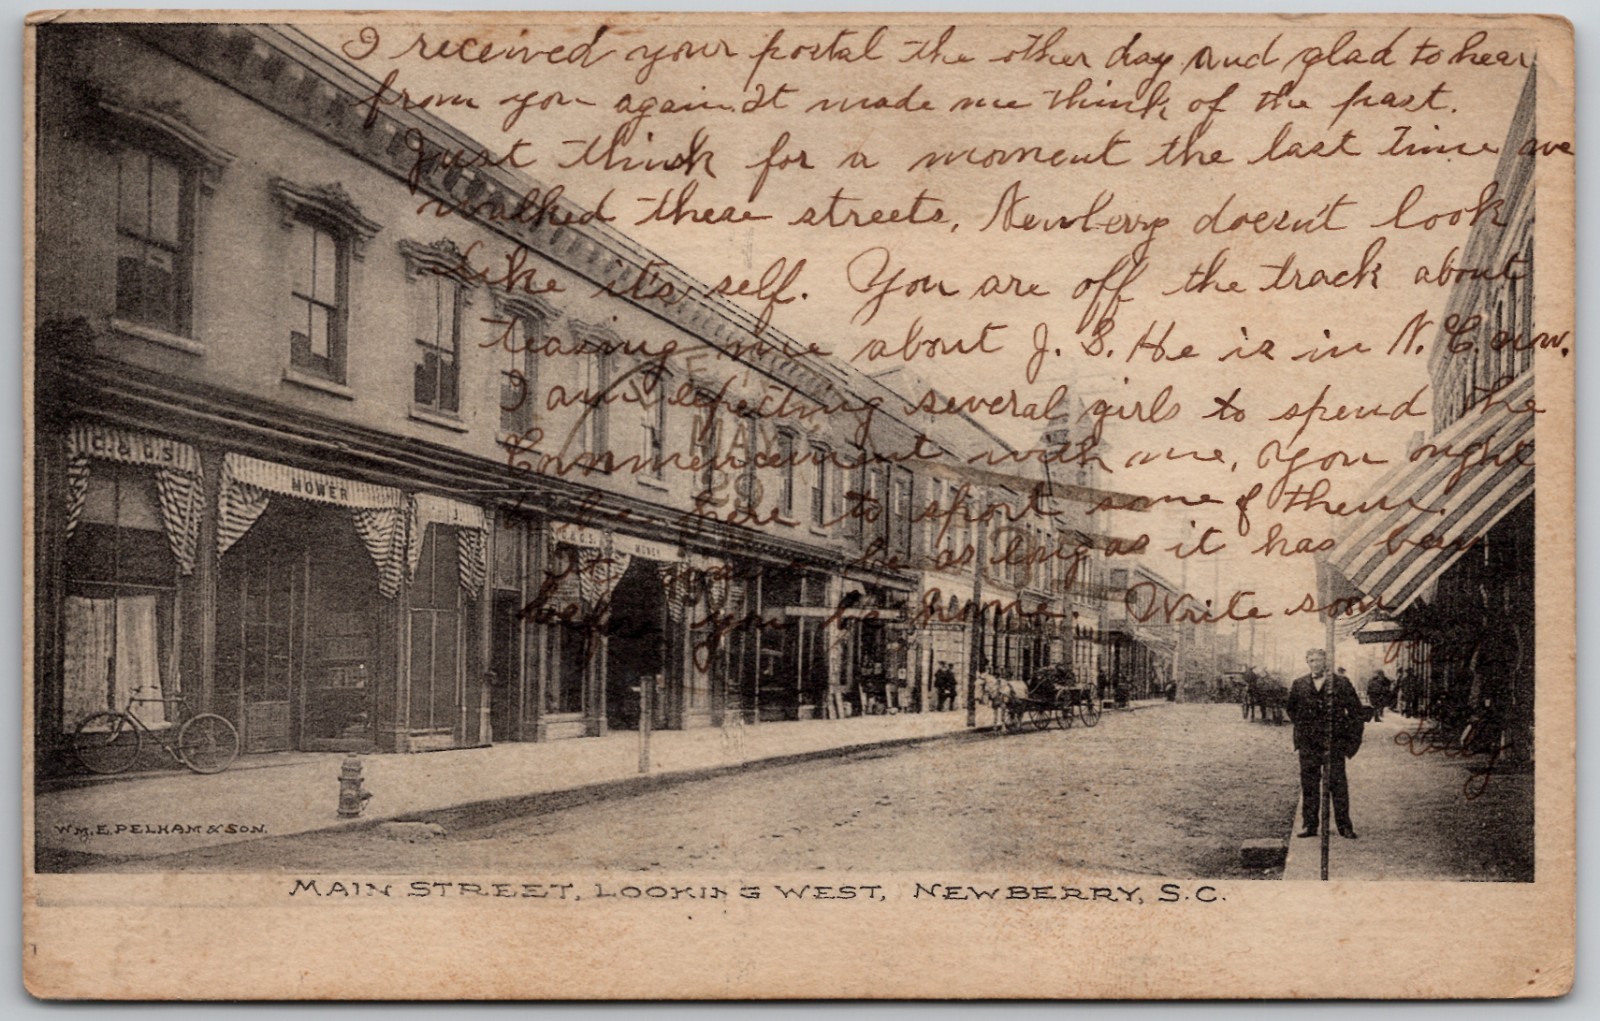 I received your postal the other day and glad to hear
from you again. It made me think of the past.
Just think for a moment the last time we
walked these streets, Newberry doesn't look
like it's self. You are off the track about
teasing me about J. S. He is in N. C. now.
I am expecting several girls to spend the
Commencement with me, You ought
to be here to sport some of them.
It will be as long as it has been
before you be home. Write soon
Lily
C. & G.S.
MOWER
C. & G.S.
MOWER
MAY
29
WM. E. PELHAM & SON.
MAIN STREET, LOOKING WEST, NEWBERRY, S.C.